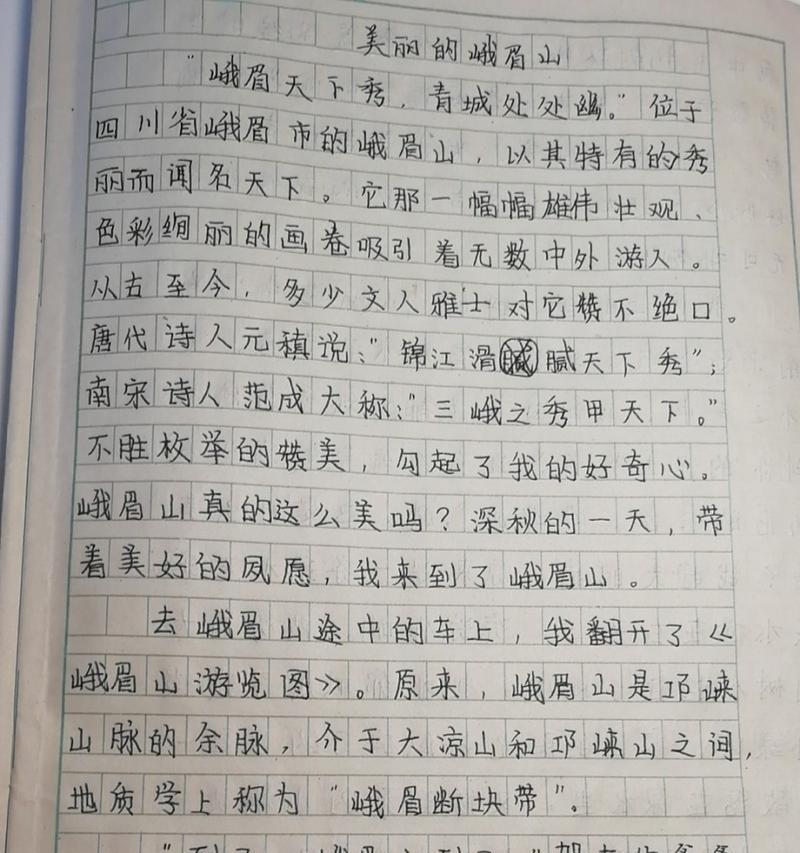 美丽的峨眉山
“峨眉天下秀，青城处处幽。”位于
四川省峨眉市的峨眉山，以其特有的秀
丽而闻名天下。它那一幅幅雄伟壮观、
色彩绚丽的画卷吸引着无数中外游人。
从古至今，多少文人雅士对它赞不绝口。
唐代诗人元稹说：“锦江滑腻天下秀”；
南宋诗人范成大称：“三峨之秀甲天下。”
不胜枚举的赞美，勾起了我的好奇心。
峨眉山真的这么美吗？深秋的一天，带
着美好的夙愿，我来到了峨眉山。
去峨眉山途中的车上，我翻开了《
峨眉山游览图》。原来，峨眉山是邛崃
山脉的余脉，介于大凉山和邛崃山之间，
地质学上称为“峨眉断块带”。